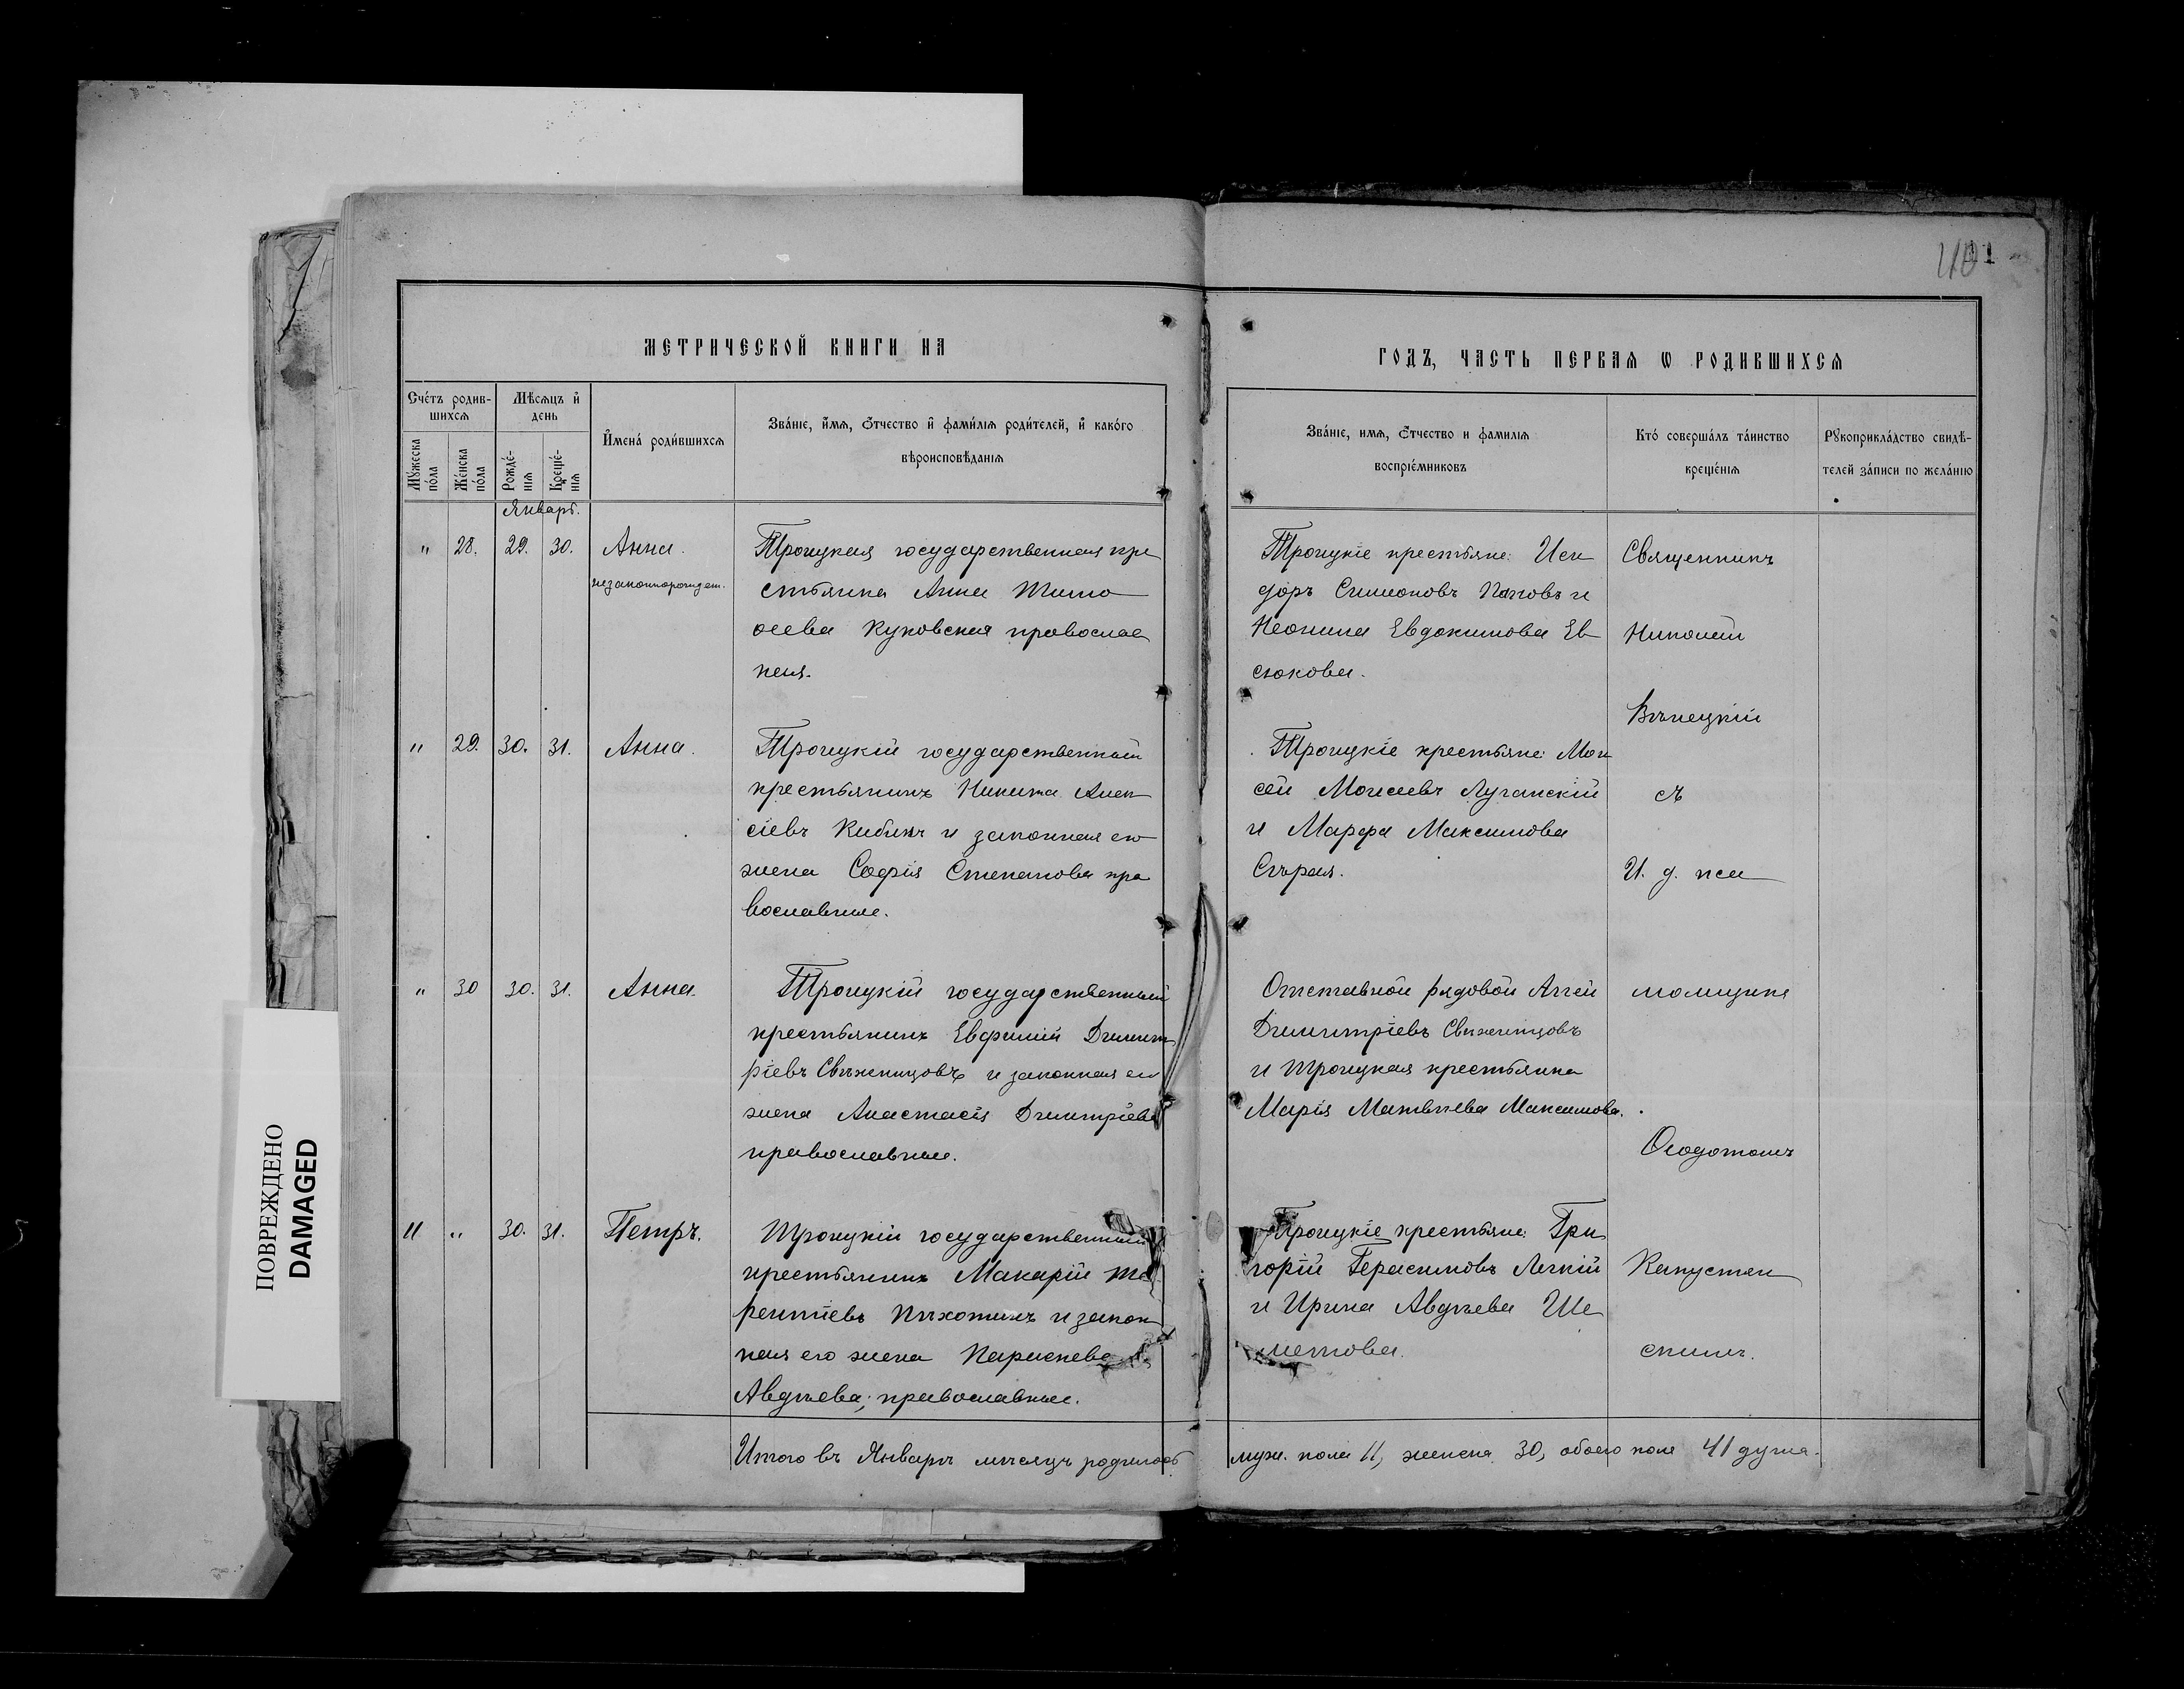 401
МЕТРИЧЕСКОЙ КНИГИ НА
ГОДЪ, ЧАСТЬ ПЕРВАЯ Ѡ РОДИВШИХСЯ
Счетъ родив-
шихся
Мѣсяцъ и
день
Мужеска
пола
Женска
пола
Рожде-
нія
Креще-
нія
Имена родившихся
Званіе, имя, отчество и фамилія родителей, и какого
вѣроисповѣданія
Званіе, имя, отчество и фамилія
воспріемниковъ
Кто совершалъ таинство
крещенія
Рукоприкладство свидѣ-
телей записи по желанію
Январь.
" 28. 29. 30. Анна.
незаконнорожден.
Троицкая государственная кре
стьянка Анна Тимо
ѳеева Куковская православ
ная.
Троицкіе крестьяне: Иси
доръ Симоновъ Поповъ и
Неонила Евдокимова Ев
сюкова.
" 29. 30. 31. Анна.
Троицкій государственный
крестьянинъ Никита Алек
сіевъ Кибикъ и законная его
жена Софія Степанова пра
вославные.
Троицкіе крестьяне: Мои
сей Моисеевъ Луганскій
и Марфа Максимова
Сѣрая.
" 30 30. 31. Анна.
Троицкій государственный
крестьянинъ Евфимій Димит
ріевъ Свѣженцовъ и законная его
жена Анастасія Димитріева
православные.
Отставной рядовой Аггей
Димитріевъ Свѣженцовъ
и Троицкая крестьянка
Марія Матвѣева Максимова.
11 " 30. 31. Петръ.
Троицкій государственный
крестьянинъ Макарій Те
рентіевъ Пѣхотинъ и закон
ная его жена Параскева
Авдѣева; православные.
Троицкіе крестьяне: Гри
горій Герасимовъ Легкій
и Ирина Авдѣева Ше
метова.
Священникъ
Николай
Вѣнецкій
съ
И. д. пса
ломщика
Ѳеодотомъ
Капустян
скимъ.
Итого въ Январѣ мѣсяцѣ родилось муж. пола 11, женска 30, обоего пола 41 душа.
ПОВРЕЖДЕНО
DAMAGED